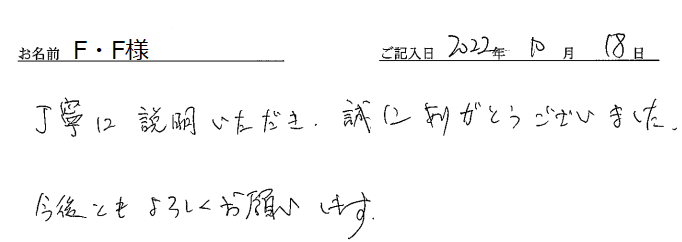 お名前 F・F様 ご記入日 2022年 10月 18日
丁寧に説明いただき、誠にありがとうございました。
今後ともよろしくお願いします。